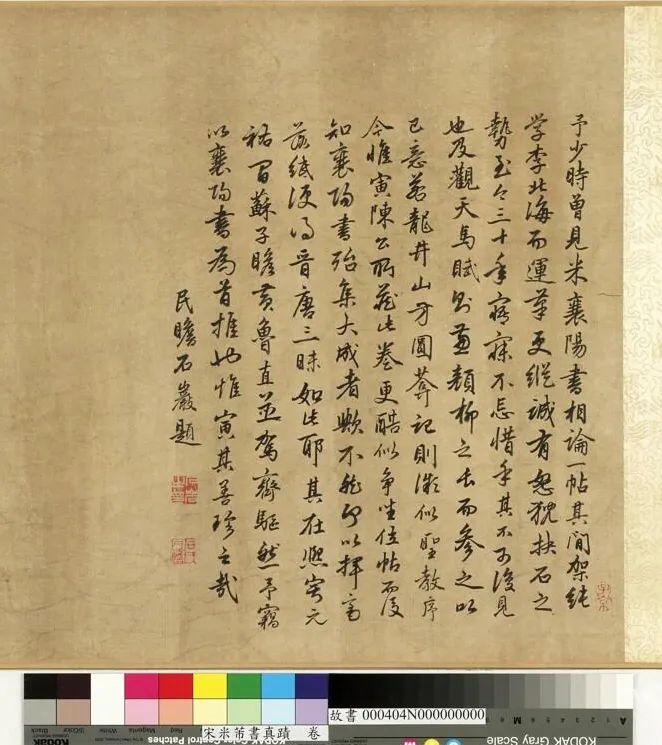 予少時曾見米襄陽書相論一帖其間架純
學李北海而運筆更縱誠有怒猊抉石之
勢至今三十年寤寐不忘惜乎其不可復見
也及觀天馬賦則兼顏柳之長而參之以
己意若龍井山方圓菴記則似聖教序
今惟寅陳公所藏此卷更酷似爭坐位帖而後
知襄陽書殆集大成者歟不然何以揮毫
落紙便得晉唐三昧如此耶其在熙寧元
祐間蘇子瞻黃魯直並駕齊驅然予竊
以襄陽書為首推也惟寅其善珍之哉
民瞻石巖題
故書 000404N000000000
宋米芾書真蹟 卷
KODAK Gray Scale
Kodak Color Control Patches